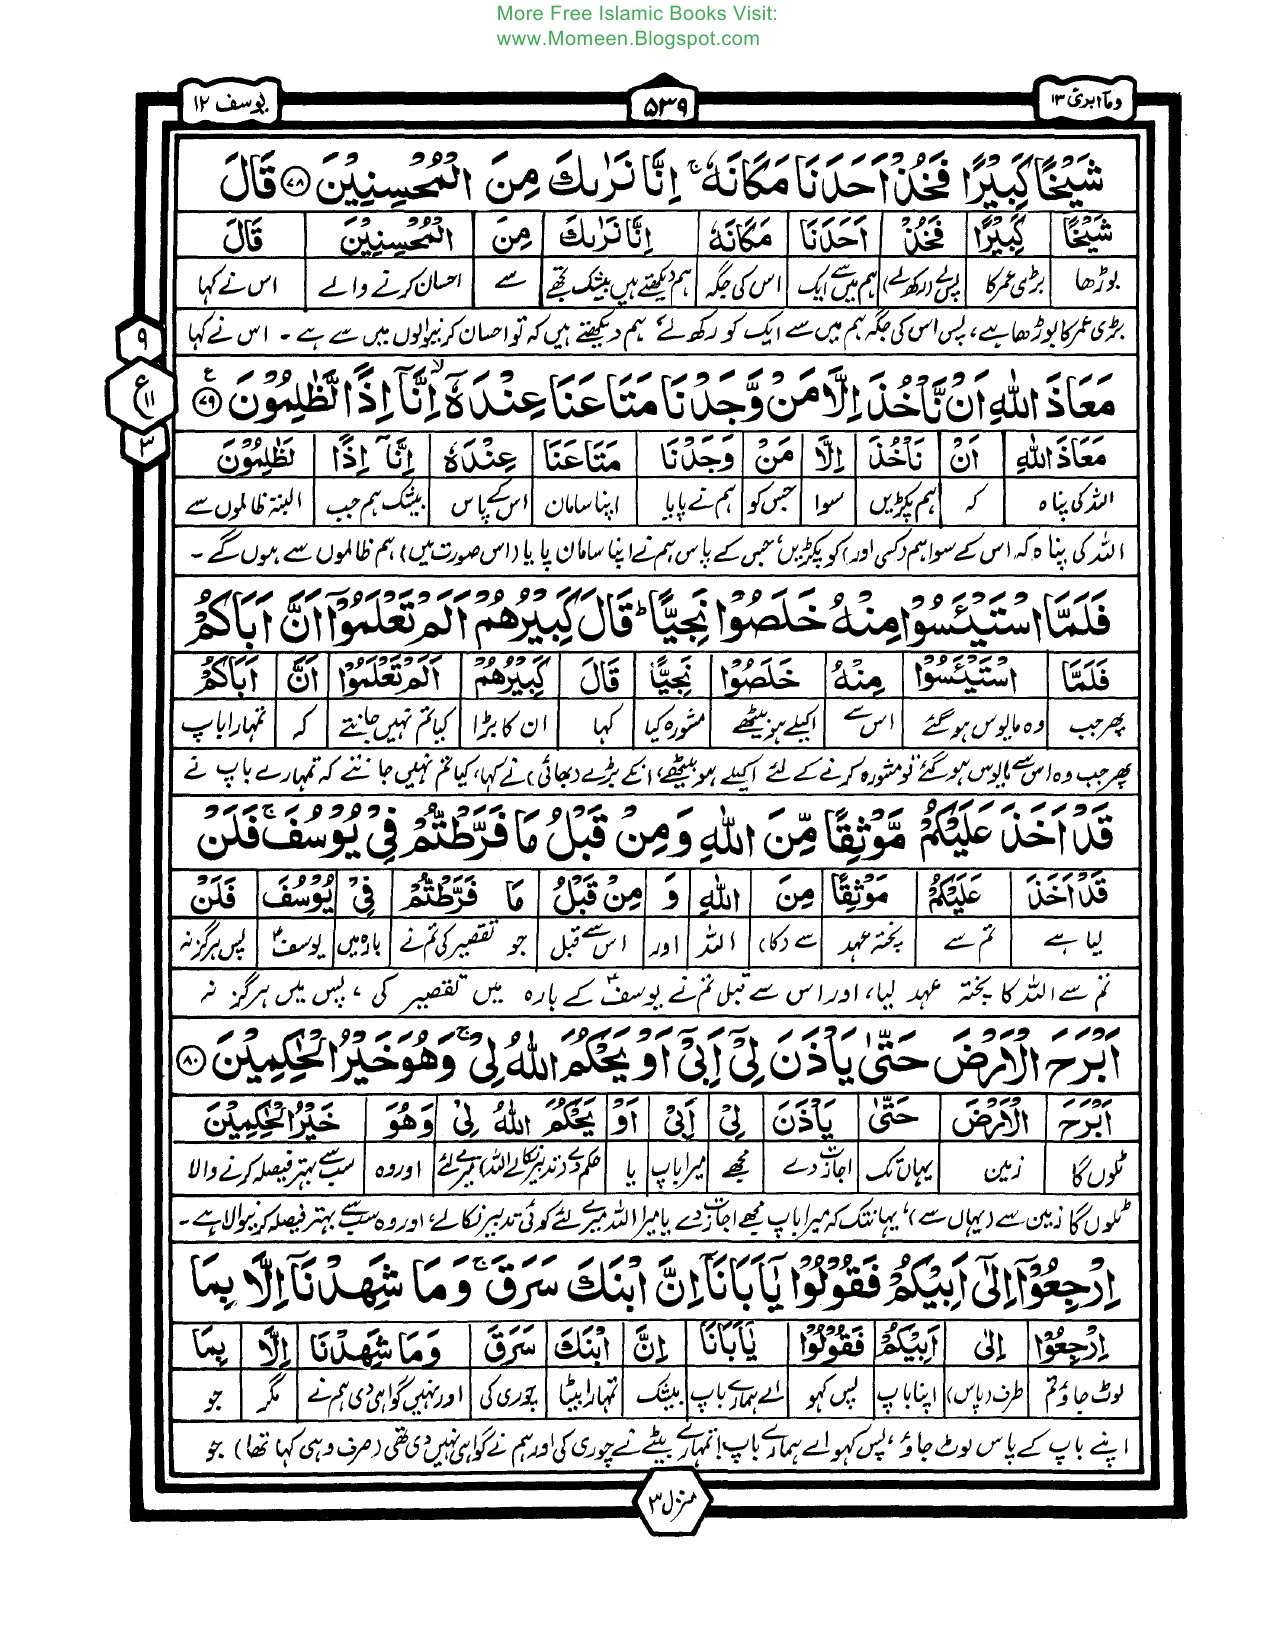 More Free Islamic Books Visit:
www.Momeen.Blogspot.com
وما ابرئ ۱۳
۵۳۹
یوسف ۱۲
شَيْخًا كَبِيْرًا فَخُذْ اَحَدَنَا مَكَانَهٗ ۚ اِنَّا نَرٰىكَ مِنَ الْمُحْسِنِيْنَ ۷۸ قَالَ
شَيْخًا كَبِيْرًا فَخُذْ اَحَدَنَا مَكَانَهٗ اِنَّا نَرٰىكَ مِنَ الْمُحْسِنِيْنَ قَالَ
بوڑھا بڑی عمر کا پس لے (رکھ لے) ہم میں سے ایک اس کی جگہ ہم دیکھتے ہیں بیشک تجھے سے احسان کرنے والے اس نے کہا
بڑی عمر کا بوڑھا ہے، پس اس کی جگہ ہم میں سے ایک کو رکھ لے، ہم دیکھتے ہیں کہ تو احسان کرنیوالوں میں سے ہے ۔ اس نے کہا
۹
ع
۱۱
۳
مَعَاذَ اللّٰهِ اَنْ نَّاْخُذَ اِلَّا مَنْ وَّجَدْنَا مَتَاعَنَا عِنْدَهٗٓ ۙ اِنَّآ اِذًا لَّظٰلِمُوْنَ ۷۹ ع
مَعَاذَ اللّٰهِ اَنْ نَاْخُذَ اِلَّا مَنْ وَجَدْنَا مَتَاعَنَا عِنْدَهٗ اِنَّآ اِذًا لَظٰلِمُوْنَ
اللہ کی پناہ کہ ہم پکڑیں سوا جس کو ہم نے پایا اپنا سامان اس کے پاس بیشک ہم جب البتہ ظالموں سے
اللہ کی پناہ کہ اس کے سوا ہم (کسی اور) کو پکڑیں، جس کے پاس ہم نے اپنا سامان پایا (اس صورت میں) ہم ظالموں سے ہوں گے ۔
فَلَمَّا اسْتَيْـَٔسُوْا مِنْهُ خَلَصُوْا نَجِيًّا ؕ قَالَ كَبِيْرُهُمْ اَلَمْ تَعْلَمُوْٓا اَنَّ اَبَاكُمْ
فَلَمَّا اسْتَيْـَٔسُوْا مِنْهُ خَلَصُوْا نَجِيًّا قَالَ كَبِيْرُهُمْ اَلَمْ تَعْلَمُوْٓا اَنَّ اَبَاكُمْ
پھر جب وہ مایوس ہو گئے اس سے اکیلے ہو بیٹھے مشورہ کیا کہا ان کا بڑا کیا تم نہیں جانتے کہ تمہارا باپ
پھر جب وہ اس سے مایوس ہو گئے تو مشورہ کرنے کے لئے اکیلے ہو بیٹھے، انکے بڑے (بھائی) نے کہا، کیا تم نہیں جانتے کہ تمہارے باپ نے
قَدْ اَخَذَ عَلَيْكُمْ مَّوْثِقًا مِّنَ اللّٰهِ وَمِنْ قَبْلُ مَا فَرَّطْتُّمْ فِيْ يُوْسُفَ ۚ فَلَنْ
قَدْ اَخَذَ عَلَيْكُمْ مَوْثِقًا مِنَ اللّٰهِ وَ مِنْ قَبْلُ مَا فَرَّطْتُمْ فِيْ يُوْسُفَ فَلَنْ
لیا ہے تم سے پختہ عہد سے (کا) اللہ اور اس سے قبل جو تقصیر کی تم نے بارہ میں یوسفؑ پس ہرگز نہ
تم سے اللہ کا پختہ عہد لیا، اور اس سے قبل تم نے یوسفؑ کے بارہ میں تقصیر کی ، پس میں ہرگز نہ
اَبْرَحَ الْاَرْضَ حَتّٰى يَاْذَنَ لِيْٓ اَبِيْٓ اَوْ يَحْكُمَ اللّٰهُ لِيْ ۚ وَهُوَ خَيْرُ الْحٰكِمِيْنَ ۸۰
اَبْرَحَ الْاَرْضَ حَتّٰى يَاْذَنَ لِيْ اَبِيْ اَوْ يَحْكُمَ اللّٰهُ لِيْ وَهُوَ خَيْرُ الْحٰكِمِيْنَ
ٹلوں گا زمین یہاں تک اجازت دے مجھے میرا باپ یا حکم دے (تدبیر نکالے اللہ) میرے لئے اور وہ سب سے بہتر فیصلہ کرنے والا
ٹلوں گا زمین سے (یہاں سے)، یہانتک کہ میرا باپ مجھے اجازت دے یا میرا اللہ میرے لئے کوئی تدبیر نکالے، اور وہ سب سے بہتر فیصلہ کرنیوالا ہے ۔
اِرْجِعُوْٓا اِلٰٓى اَبِيْكُمْ فَقُوْلُوْا يٰٓاَبَانَآ اِنَّ ابْنَكَ سَرَقَ ۚ وَمَا شَهِدْنَآ اِلَّا بِمَا
اِرْجِعُوْٓا اِلٰى اَبِيْكُمْ فَقُوْلُوْا يٰٓاَبَانَا اِنَّ ابْنَكَ سَرَقَ وَمَا شَهِدْنَا اِلَّا بِمَا
لوٹ جاؤ تم طرف (پاس) اپنا باپ پس کہو اے ہمارے باپ بیشک تمہارا بیٹا چوری کی اور نہیں گواہی دی ہم نے مگر جو
اپنے باپ کے پاس لوٹ جاؤ، پس کہو اے ہمارے باپ! تمہارے بیٹے نے چوری کی اور ہم نے گواہی نہیں دی تھی (صرف وہی کہا تھا) جو
منزل ۳